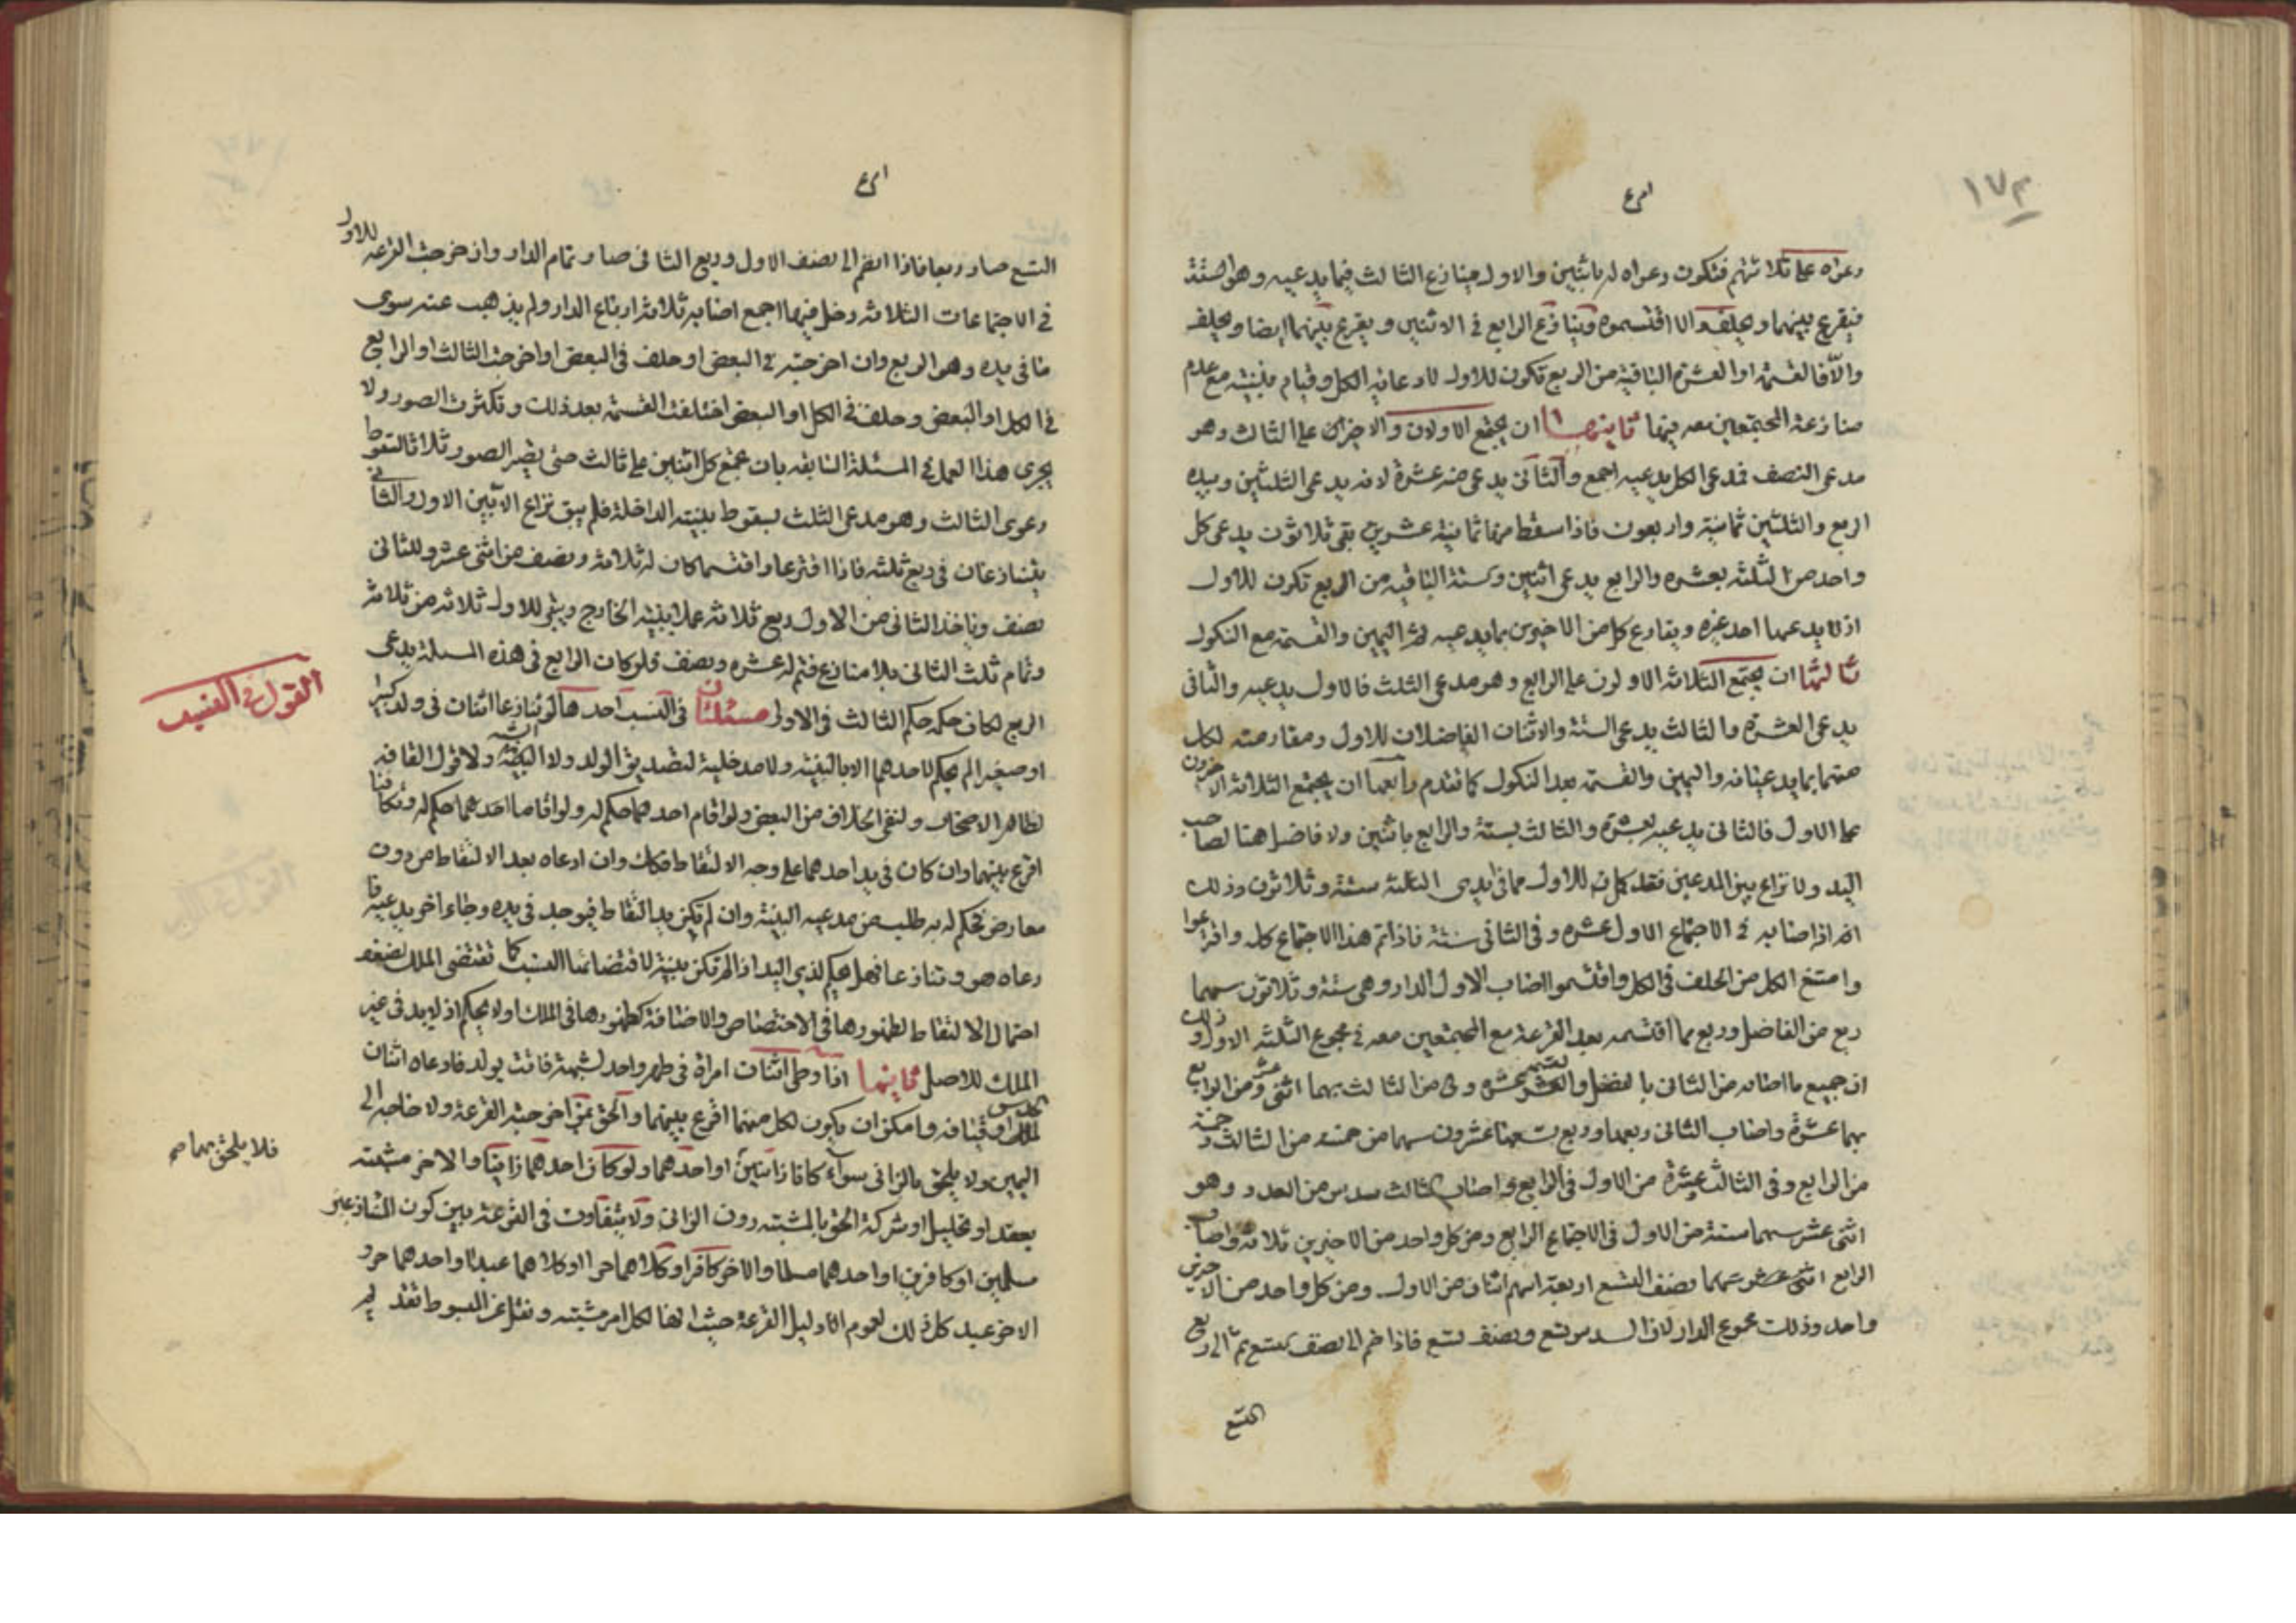 ١٧٣
دعواه على ثلاثتهم فتكون دعواه له باثنين والاول ينازع الثالث فيما يدعيه وهو ستة
فيقرع بينهما ويحلف والا اقتسموه وينازع الرابع في الاثنين ويقرع بينهما ايضا ويحلف
والا فالقسمة او العشرة الباقية من الربع تكون للاول لادعائه الكل وقيام بينته مع عدم
منازعة المجتمعين معه فيها ثانيها ان يجتمع الاولان والاخير على الثالث وهو
مدعي النصف فمدعي الكل يدعيه اجمع والثاني يدعي منه عشرة لانه يدعي الثلثين وبيده
الربع والثلثين ثمانية واربعون فاذا سقط منها ثمانية عشر بقي ثلاثون يدعي كل
واحد من الثلثة بعشره والرابع يدعي اثنين وستة الباقيه من الربع تكون للاول
اذ لا يدعيها احد غيره ويقارع كل من الاخيرين بما يدعيه ثم اليمين والقسمة مع النكول
ثالثها ان يجتمع الثلاثة الاولون على الرابع وهو مدعي الثلث فالاول يدعيه والثاني
يدعي العشرة والثالث يدعي الستة والاثنان الفاضلان للاول ومقارعته لكل
منهما بما يدعيانه واليمين والقسمة بعد النكول كما تقدم رابعها ان يجتمع الثلاثة الاخرون
على الاول فالثاني يدعيه بعشرة والثالث بستة والرابع باثنين ولا فاضل هنا لصاحب
اليد ولا نزاع بين المدعين فقد كان للاول مما في ايدي الثلثة ستة وثلاثون وذلك
انه اذا اصابه في الاجتماع الاول عشره وفي الثاني ستة فاذا تم هذا الاجتماع كله واقترعوا
وامتنع الكل من الحلف في الكل واقتسموا اصاب الاول الدار وهي ستة وثلاثون سهما
ربع من الفاضل وربع مما اقتسمه بعد القرعة مع المجتمعين معه في مجموع الثلثة الاول وذلك
ان جميع ما اصابه من الثاني بالفضل والقسمة عشره وفي من الثالث بهما اثنى عشر ومن الرابع
بهما عشرة واصاب الثاني ربعها وربع تسعها عشرون سهما من خمسة من الثالث وخمسة
من الرابع وفي الثالث عشرة من الاول في الرابع واصاب الثالث سدس من العدد وهو
اثنى عشر سهما ستة من الاول في الاجتماع الرابع ومن كل واحد من الاخيرين ثلاثة واصاب
الرابع نصف التسع اربعة اسهم اثنان من الاول ومن كل واحد من الاخرين
واحد وذلك مجموع الدار لان السدس تسع ونصف تسع فاذا ضم الى نصف تسع ثم الى ربع
التسع
التسع صار ربعا فاذا انضم الى نصف الاول وربع الثاني صار تمام الدار وان خرجت القرعه للاول
في الاجتماعات الثلاثة دخل فيها اجمع اصابه ثلاثة ارباع الدار ولم يذهب عنه سوى
ما في يده وهو الربع وان اخرجته في البعض او حلف في البعض او اخرجت الثالث او الرابع
في الكل او البعض وحلف في الكل او البعض اختلفت القسمة بعد ذلك وتكثرت الصور ولا
يجرى هذا العمل في المسئلة السابقه بان يجتمع كل اثنين على ثالث حتى يصير الصور ثلاثا لسقوط
دعوى الثالث وهو مدعي الثلث لسقوط بينته الداخلة فلم يبق نزاع الا بين الاول والثاني
يتنازعان في ربع ثلثه فاذا اقترعا واقتسما كان له ثلاثة ونصف من اثنى عشر وللثاني
نصف وياخذ الثاني من الاول ربع ثلاثة عملا ببينته الخارج ويبقى للاول ثلاثه من ثلاثة
وتمام ثلث الثاني بلا منازع فتم له عشره ونصف ولو كان الرابع في هذه المسئلة يدعي
الربع لكان حكمه حكم الثالث في الاولى مسئلتان في النسب احدهما لو تنازعا اثنان في ولد كبير
القول في النسب
او صغير لم يحكم لاحدهما الا بالبينة ولا مدخلية لتصديق الولد ولا ولا قول القافه
لظاهر الاصحاب ولنفي الخلاف من البعض ولو اقام احدهما حكم له ولو اقاما احدهما حكم له وتكافئا
اقرع بينهما وان كان في يد احدهما على وجه الالتقاط فكك وان ادعاه بعد الالتقاط من دون
معارض فحكم له به طلب من مدعيه البينة وان لم تكن يد التقاط فيوجد في يده وجاء اخر يدعيه فا
دعاه هو وتنازعا فهل يحكم لذي اليد اذا لم تكن بينة لاقتضائها النسب كما تقتضي الملك لضعف
احتمال الالتقاط لظهورها في الاختصاص والاضافة كظهورها في الملك اولا يحكم اذ لا يد في غير
الملك للاصل ثانيها اذا وطى اثنان امراة في طهر واحد لشبهة فاتت بولد فادعاه اثنان
وامكن ان يكون لكل منهما اقرع بينهما والحق بمن اخرجته القرعة ولا حاجة الى
اليمين ولا يلحق بالزاني سواء كانا زانيين او احدهما ولو كان احدهما زانيا والاخر مشتبه
فلا يلحق بهما صح
بعقد او تحليل او شركة الحق بالمشتبه دون الزاني ولا يتفاوت في القرعة بين كون المتنازعين
مسلمين او كافرين او احدهما مسلما والاخر كافرا وكلاهما حرا او كلاهما عبدا او احدهما حر و
الاخر عبد كل ذلك لعموم الادليل القرعة حيث انها لكل امر مشتبه ونقل عن المبسوط تقديم